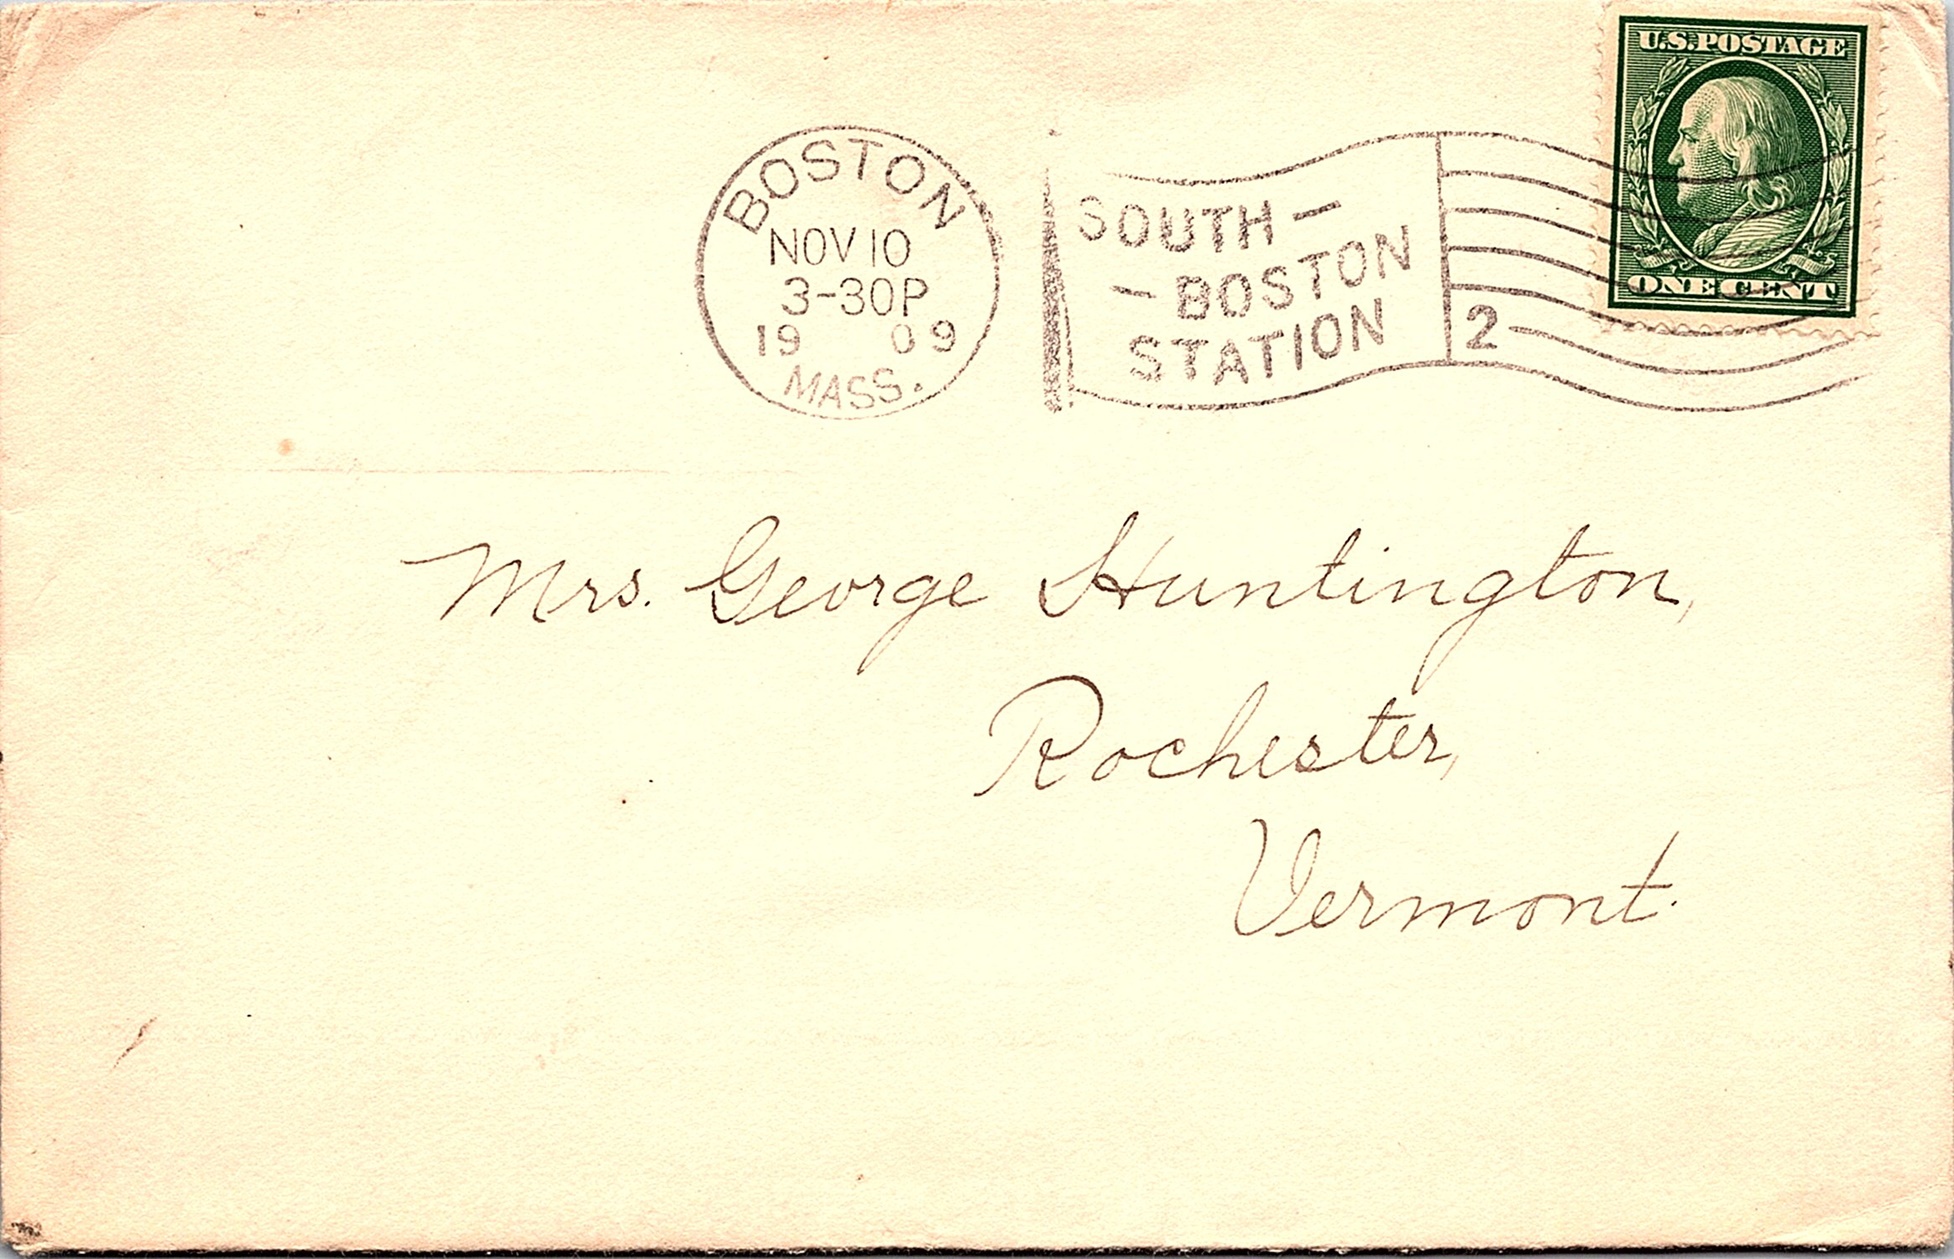 U.S. POSTAGE
ONE CENT
BOSTON
NOV 10
3-30P
19 09
MASS.
SOUTH-
-BOSTON
STATION
2
Mrs. George Huntington,
Rochester,
Vermont.